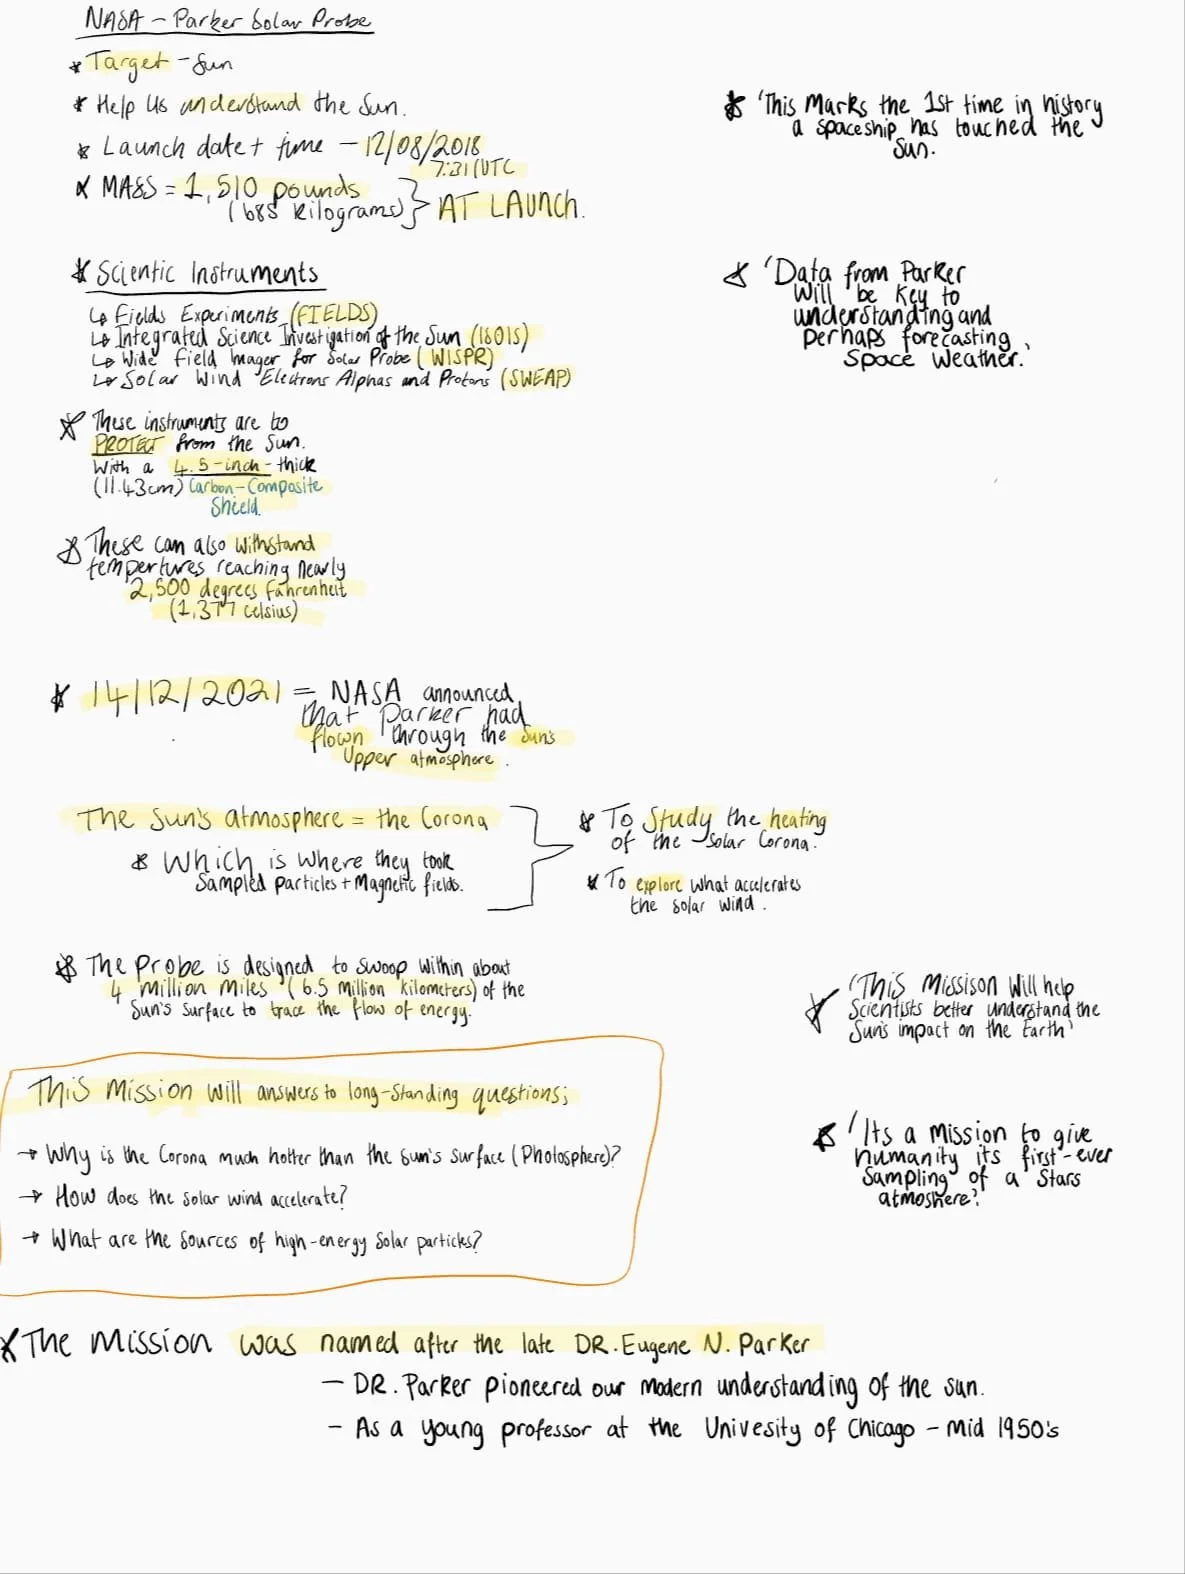 NASA - Parker Solar Probe
* Target - Sun
* Help Us understand the Sun.
* Launch date + time - 12/08/2018
7:31 UTC
* MASS = 1,510 pounds
(685 kilograms) } AT LAUNCH.
* Scientic Instruments
↳ Fields Experiments (FIELDS)
↳ Integrated Science Investigation of the Sun (ISOIS)
↳ Wide Field Imager for Solar Probe (WISPR)
↳ Solar Wind Electrons Alphas and Protons (SWEAP)
* These instruments are to
PROTECT from the Sun.
With a 4.5-inch-thick
(11.43cm) Carbon-Composite
Shield.
* These can also withstand
tempertures reaching nearly
2,500 degrees fahrenheit
(1,377 celsius)
* 14/12/2021 = NASA announced
that Parker had
flown through the Sun's
Upper atmosphere.
The Sun's atmosphere = the Corona
* Which is where they took
Sampled particles + Magnetic fields.
* To Study the heating
of the Solar Corona.
* To explore what accelerates
the solar wind.
* The Probe is designed to swoop within about
4 million miles (6.5 million kilometers) of the
Sun's surface to trace the flow of energy.
This Mission Will answers to long-Standing questions;
→ Why is the Corona much hotter than the Sun's surface (Photosphere)?
→ How does the solar wind accelerate?
→ What are the sources of high-energy solar particles?
* The Mission was named after the late DR. Eugene N. Parker
- DR. Parker pioneered our modern understanding of the sun.
- As a young professor at the Univesity of Chicago - mid 1950's
* 'This Marks the 1st time in history
a spaceship has touched the
Sun.
* 'Data from Parker
Will be Key to
understanding and
perhaps forecasting
Space Weather.'
* 'This Missison Will help
Scientists better understand the
Sun's impact on the Earth'
* 'Its a Mission to give
humanity its first-ever
Sampling of a Stars
atmoshere'.